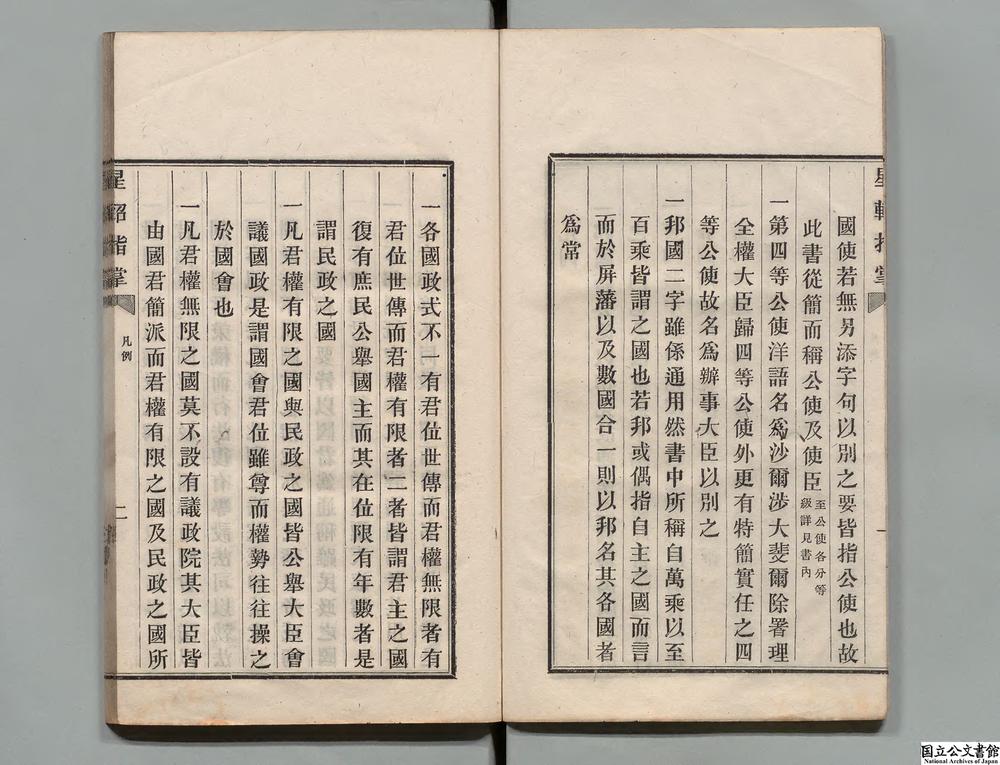 國使若無另添字句以別之要皆指公使也故
此書從簡而稱公使及使臣至公使各分等級詳見書內
一第四等公使洋語名爲沙爾涉大斐爾除署理
全權大臣歸四等公使外更有特簡實任之四
等公使故名爲辦事大臣以別之
一邦國二字雖係通用然書中所稱自萬乘以至
百乘皆謂之國也若邦或偶指自主之國而言
而於屏藩以及數國合一則以邦名其各國者
爲常
星軺指掌
凡例
二
一各國政式不一有君位世傳而君權無限者有
君位世傳而君權有限者二者皆謂君主之國
復有庶民公舉國主而其在位限有年數者是
謂民政之國
一凡君權有限之國與民政之國皆公舉大臣會
議國政是謂國會君位雖尊而權勢往往操之
於國會也
一凡君權無限之國莫不設有議政院其大臣皆
由國君簡派而君權有限之國及民政之國所
国立公文書館
National Archives of Japan